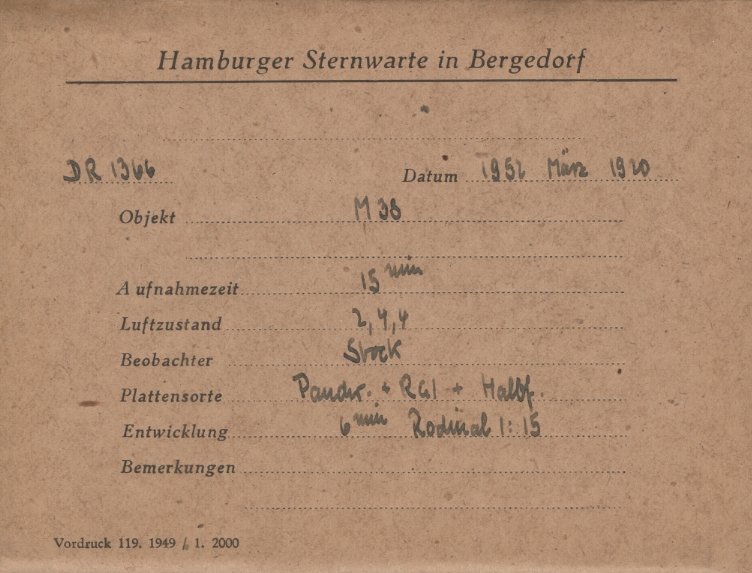 Hamburger Sternwarte in Bergedorf
DR 1366 Datum 1952 März 19/20
Objekt M 38
Aufnahmezeit 15 min
Luftzustand 2, 4, 4
Beobachter Stock
Plattensorte Panchr. + RG1 + Halbf.
Entwicklung 6 min Rodinal 1:15
Bemerkungen
Vordruck 119. 1949 / 1. 2000